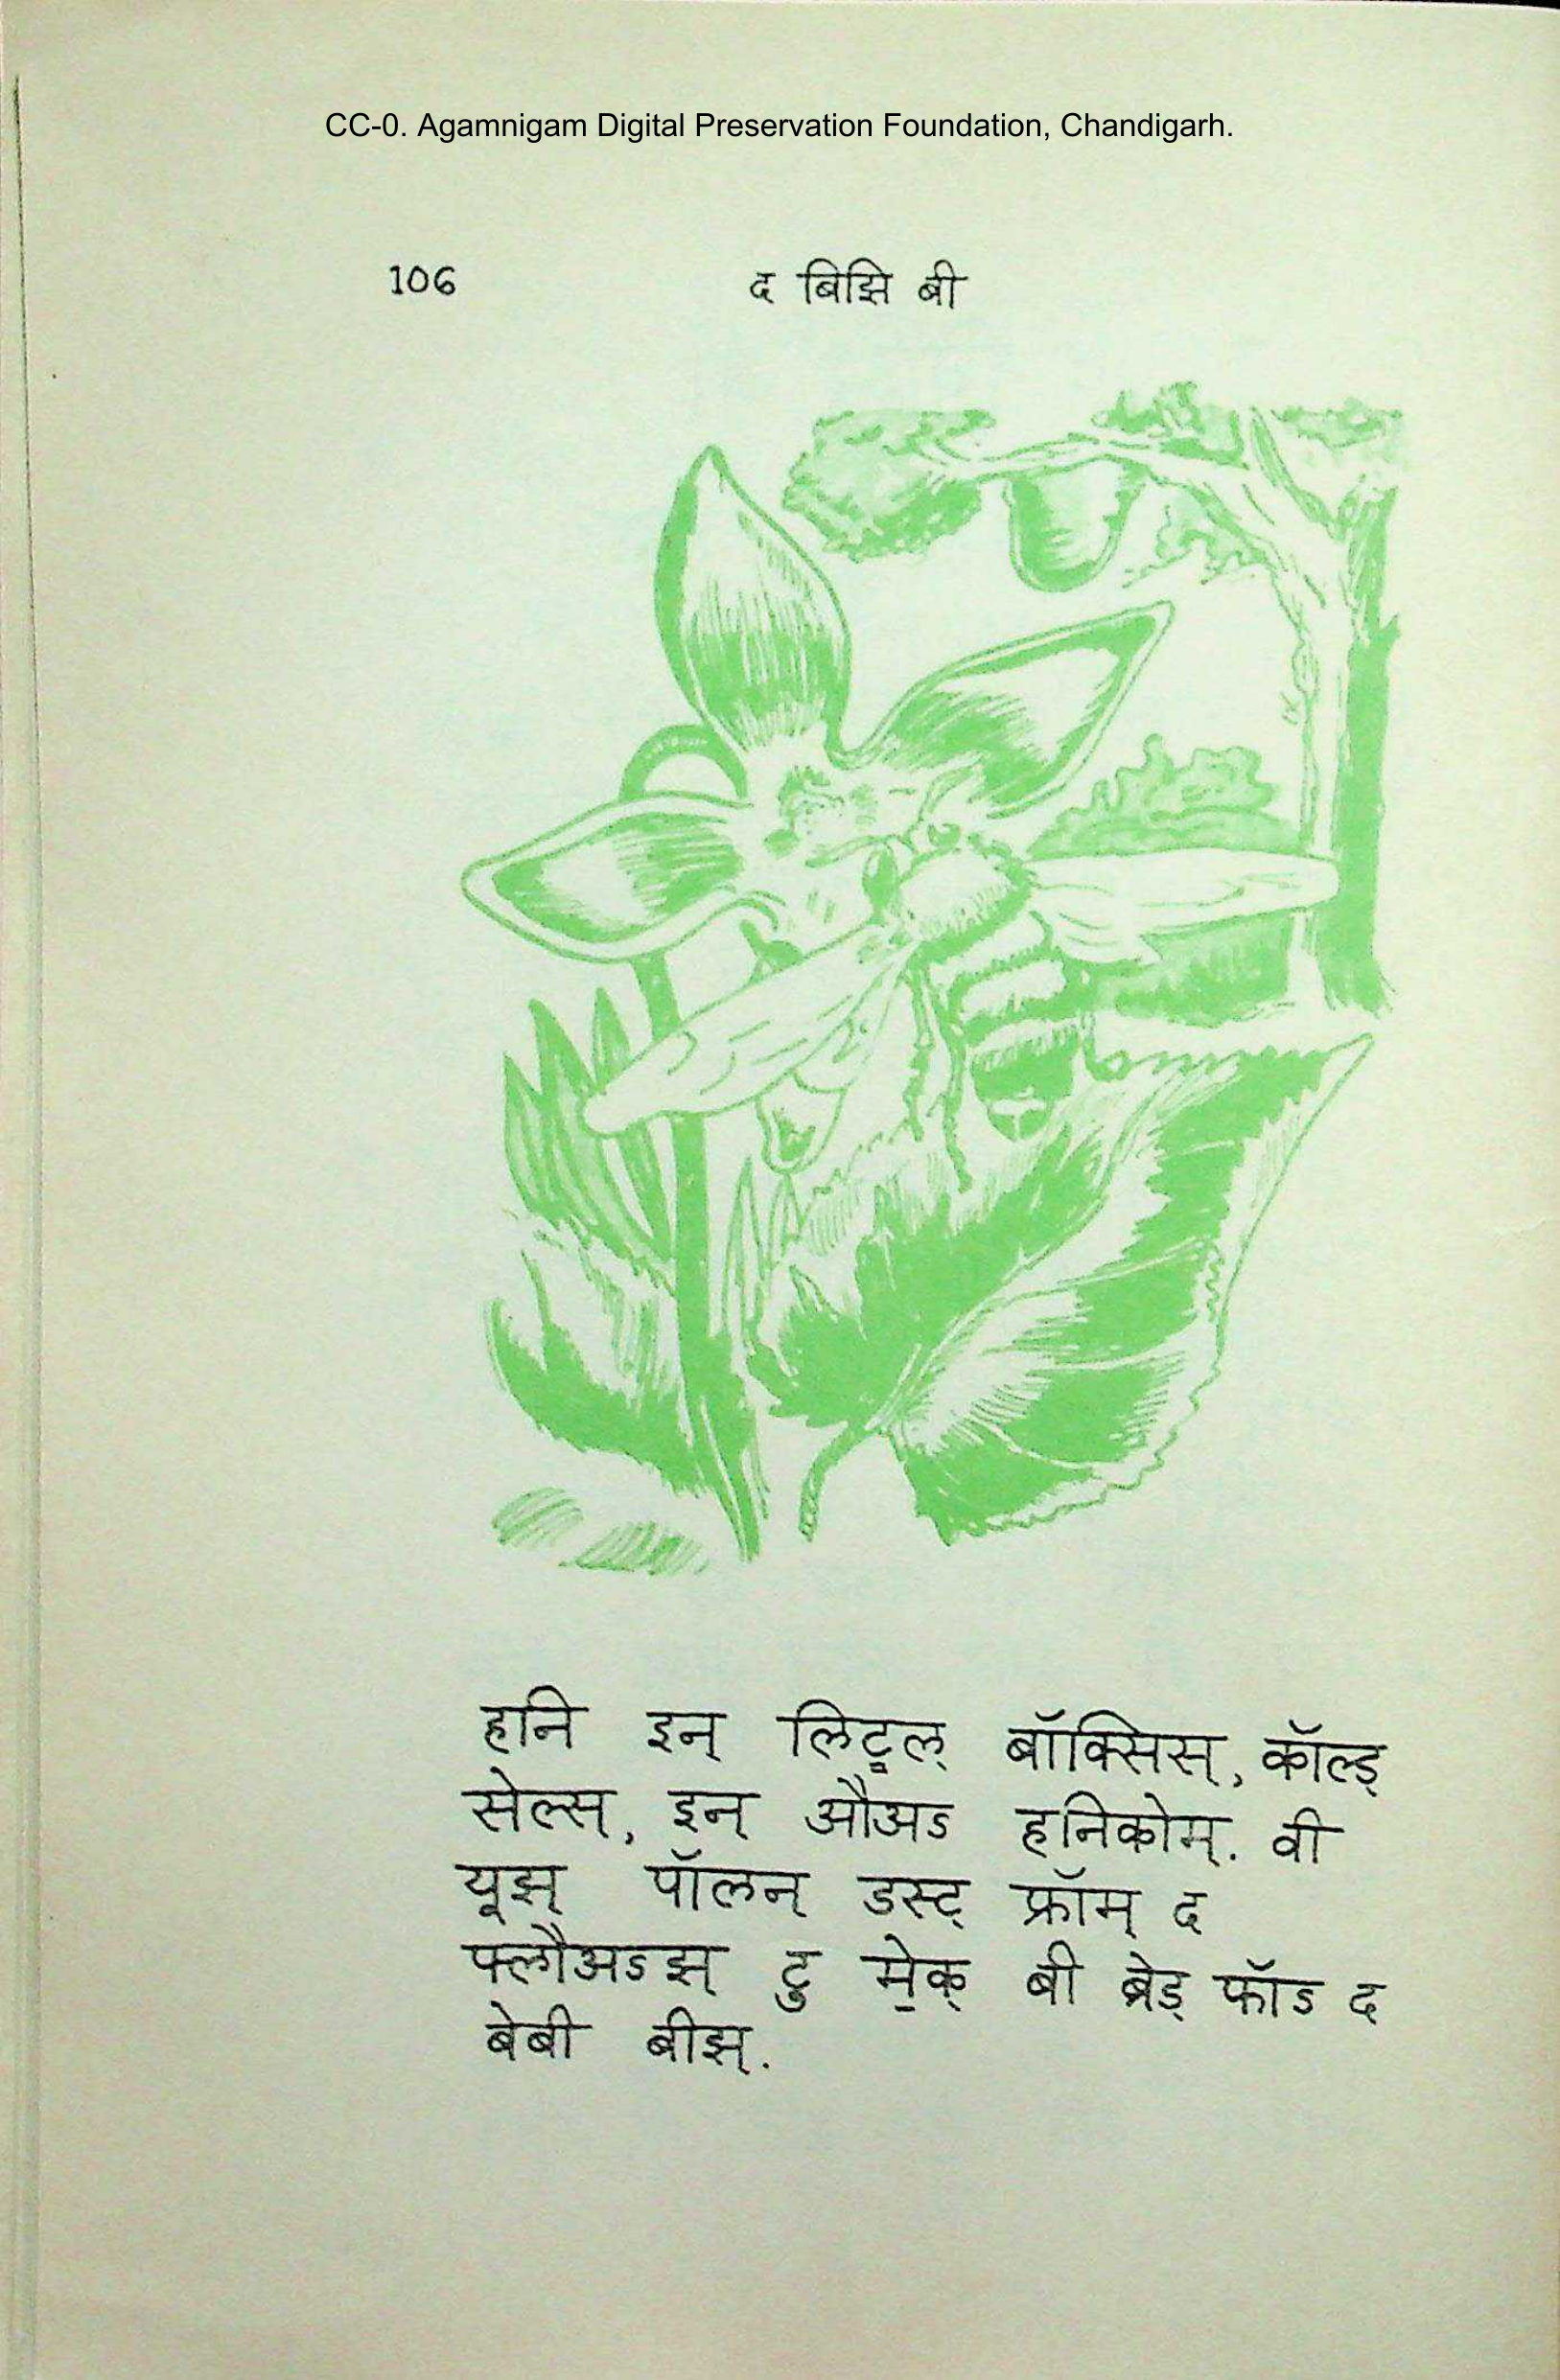 CC-0. Agamnigam Digital Preservation Foundation, Chandigarh.
106 द बिझि बी
हनि इन् लिटॢल् बॉक्सिस्, कॉल्ड्
सेल्स्, इन् औअऽ हनिकोम्. वी
यूझ् पॉलन् डस्ट् फ्रॉम् द
फ्लौअऽझ् टु मे॒क् बी ब्रेड् फॉऽ द
बेबी बीझ्.